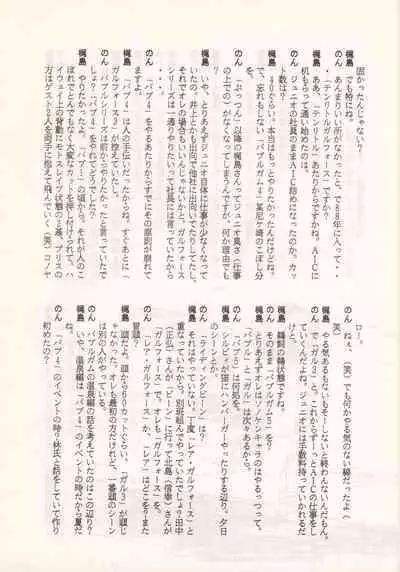 固かった人じゃない？
梶島　でも特にね。
のん　あんまりいい所がなかったと、で88年に入って・・
・「テンリトルガルフォース」ですか？
梶島　ああ、「テンリトル」あたりからですかね。ＡＩＣに
机もらって通い始めたのは。
のん　ジュニオの社員のままＡＩＣ詰めになったのか。カッ
ト数は？
梶島　40ぐらい。本当はもっとやりたかったんだけどね。
で、忘れもしない「バブルガム４」某尼ヶ崎のこぼし分
のん　「ぶっつん」以降の梶島さんってジュニオ臭さ（仕事
の上での）がなくなってしまうんですが、何か理由でも
梶島　いや、とりあえずジュニオ自体に仕事が少なくなって
いたの。井上とかも出向いで他社に出向いてたりしてたし。
それでオレの場合もいいんじゃないかと。ガルフォース
シリーズは一通りやりたいって社長には言ってた。
のん　「バブ４」をやるあたりからすでにその原則が崩れて
ますが。
梶島　「バブ４」は人の手伝いだったからね。すぐあとに「
ガルフォース３」が控えていたし。
のん　バブルシリーズは前からやりたかったと言っていたで
しょ？「バブ４」をやれてどうでした？
梶島　やりたかったよ、「バブ１」の頃から。それが人のこ
ぼれでとんでもない大変なカットを押し付けられて、ハ
イウェイ上の背動にモトスレイブ状態の２基、プリスの
方はゲスト２人を両手に抱えて飛んでいく（笑）コノヤ
ロー。
のん　ねぇ。（笑）でも何かやる気のない線だったよ（
笑）
梶島　やる気あるもないもそーしないと終わんないんだもん。
で「ガル３」と。これからずーっとＡＩＣの仕事をし
ていくんだよね。ジュニオには手数料持っていかれるだ
けと。
のん　鵜飼の鵜状態ですな。
そのまま「バブルガム５」を？
梶島　とりあえずオレはソノケンキャラのはやるっつって。
「バブル」と「ガル」は次々あるから。
のん　「バブ５」は何処を。
梶島　シルビィが猫にハンバーガーやったりする辺り。夕日
のシーンとか。
のん　「ライディングビーン」は？
梶島　それはやっていない。丁度「レア・ガルフォース」と
重なっていたから。別班組んでやっていたでしょ？田中
（正弘）さんが「ビーン」行って北島（信幸）さんが
「ガルフォース」で、オレも「ガルフォース」を。
のん　「レア・ガルフォース」か、「レア」はどこを？また
冒頭？
梶島　頭だよ。頭から６０カットぐらい。「ガル３」が頭じ
ゃなかった。オレも最初の方だけれど、一番頭のシーン
は別の人がやっている。
のん　バブルガムの温泉編の話を考えていたのはこの辺り？
梶島　いや、温泉編は「バブ４」のイベントの時だから夏だ
ね。
のん　「バブ４」のイベントの時？林氏と話をしていて作り
初めたの？